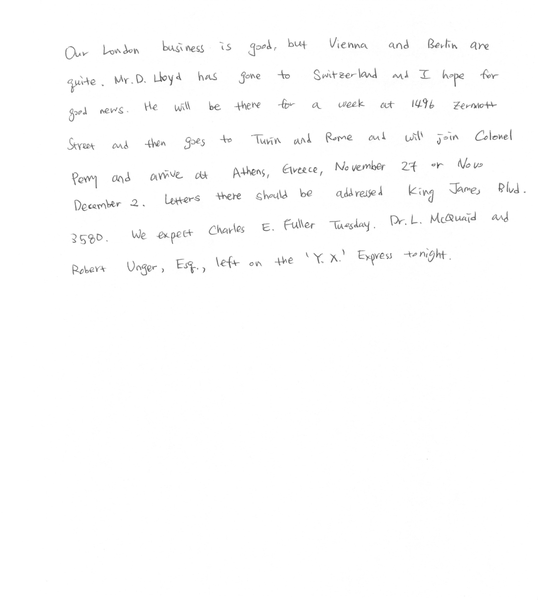 Our London business is good, but Vienna and Berlin are
quite. Mr. D. Lloyd has gone to Switzerland and I hope for
good news. He will be there for a week at 1496 Zermott
Street and then goes to Turin and Rome and will join Colonel
Perry and arrive at Athens, Greece, November 27 or Novo
December 2. Letters there should be addressed King James Blvd.
3580. We expect Charles E. Fuller Tuesday. Dr. L. McQuaid and
Robert Unger, Esq., left on the 'Y. X.' Express tonight.